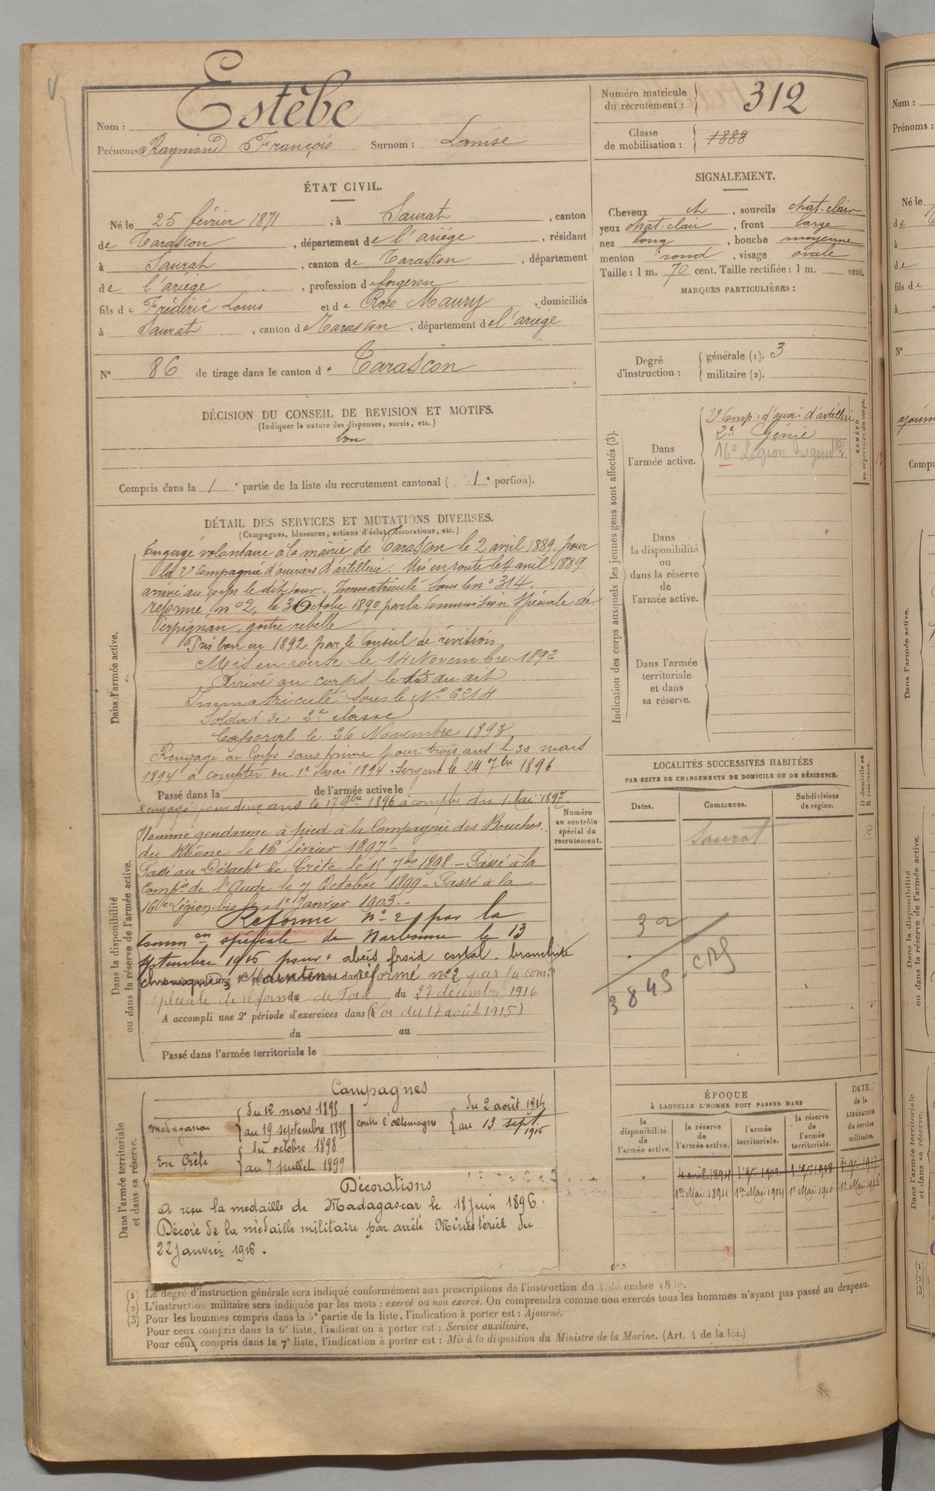 Nom : Estèbe
Prénoms : Raymond François Surnom : Louise
Numéro matricule du recrutement : 312
Classe de mobilisation : 1889
ÉTAT CIVIL.
Né le 25 février 1871, à Saurat, canton
de Tarascon, département de l'ariége, résidant
à Saurat, canton de Tarascon, département
de l'ariege, profession de forgeron
fils de Frédéric Louis et de Rose Maury, domiciliés
à Saurat, canton de Tarascon, département de l'ariége
N° 86 de tirage dans le canton de Tarascon
SIGNALEMENT.
Cheveux ch, sourcils chat-clair
yeux chat-clair, front large
nez long, bouche moyenne
menton rond, visage ovale
Taille : 1 m. 70 cent. Taille rectifiée : 1 m. cent.
MARQUES PARTICULIÈRES :
Degré d'instruction : générale (1). 3
militaire (2).
DÉCISION DU CONSEIL DE REVISION ET MOTIFS.
(Indiquer la nature des dispenses, sursis, etc.)
bon
Compris dans la 1e partie de la liste du recrutement cantonal ( 1e portion).
DÉTAIL DES SERVICES ET MUTATIONS DIVERSES.
(Campagnes, blessures, actions d'éclat, décorations, etc.)
Dans l'armée active.
Engagé volontaire à la mairie de Tarascon le 2 avril 1889, pour
la 2e Compagnie d'ouvriers d'artillerie. Mis en route le 4 avril 1889
arrivé au corps le dit jour. Immatriculé sous le n° 314.
réformé n° 2, le 3 octobre 1890 par la Commission spéciale de
Perpignan, goitre rebelle
Pris bon en 1892 par le Conseil de révision
Mis en route le 14 Novembre 1892
Arrivé au corps le dit
Immatriculé sous le N°
Soldat de 2e classe
Caporal le 26 Novembre 1893
Rengagé au Corps sans prime pour trois ans le 30 mars
1894 à compter du 1er Mai 1894. Sergent le 24 7bre 1896
Passé dans la de l'armée active le
Rengagé pour deux ans le 17 9bre 1896 à compter du 1 Mai 1897.
Numéro au contrôle spécial du recrutement.
Dans la disponibilité ou dans la réserve de l'armée active.
Nommé gendarme à pied à la Compagnie des Bouches
du Rhône le 16 février 1897.
Passé au Détacht de Crète le 15 7bre 1898 - Passé à la
Compie de l'Aude le 7 Octobre 1899 - Passé à la
16e Légion bis le 1er Janvier 1903.
Réformé n° 2 par la
Comm on spéciale de Narbonne le 13
septembre 1915 pour : abcès froid costal. bronchite
chronique Maintenu réformé n° 2 par la com
spéciale de réforme de Foix du 27 décembre 1916
A accompli une 2e période d'exercices dans
du au
Passé dans l'armée territoriale le
Indication des corps auxquels les jeunes gens sont affectés (3).
Dans l'armée active.
2e Comp. d'ouvr. d'artillerie
2e Génie
16e Légion
Dans la disponibilité ou dans la réserve de l'armée active.
Dans l'armée territoriale et dans sa réserve.
LOCALITÉS SUCCESSIVES HABITÉES
PAR SUITE DE CHANGEMENTS DE DOMICILE OU DE RÉSIDENCE.
Dates. Communes. Subdivisions de région.
Saurat
3845
Dans l'armée territoriale et dans sa réserve.
Campagnes
Madagascar du 12 mars 1895
au 19 septembre 1895
En Crète du octobre 1898
au 7 juillet 1899
contre l'Allemagne du 2 août 1914
au 13 sept. 1915
Décorations
A reçu la médaille de Madagascar le 18 juin 1896.
Décoré de la médaille militaire par arrêté Ministériel du
22 janvier 1916.
ÉPOQUE
À LAQUELLE L'HOMME DOIT PASSER DANS
la disponibilité de l'armée active.
la réserve de l'armée active.
l'armée territoriale.
la réserve de l'armée territoriale.
DATE de la LIBÉRATION du service militaire.
1er Mai 1894 1er Mai 1904 1er Mai 1910
(1) Le degré d'instruction générale sera indiqué conformément aux prescriptions de l'instruction du
(2) L'instruction militaire sera indiquée par les mots : exercé ou non exercé. On comprendra comme non exercés tous les hommes n'ayant pas passé au drapeau.
(3) Pour les hommes compris dans la 5e partie de la liste, l'indication à porter est : Ajourné.
Pour ceux compris dans la 6e liste, l'indication à porter est : Service auxiliaire.
Pour ceux compris dans la 7e liste, l'indication à porter est : Mis à la disposition du Ministre de la Marine. (Art. 4 de la loi.)